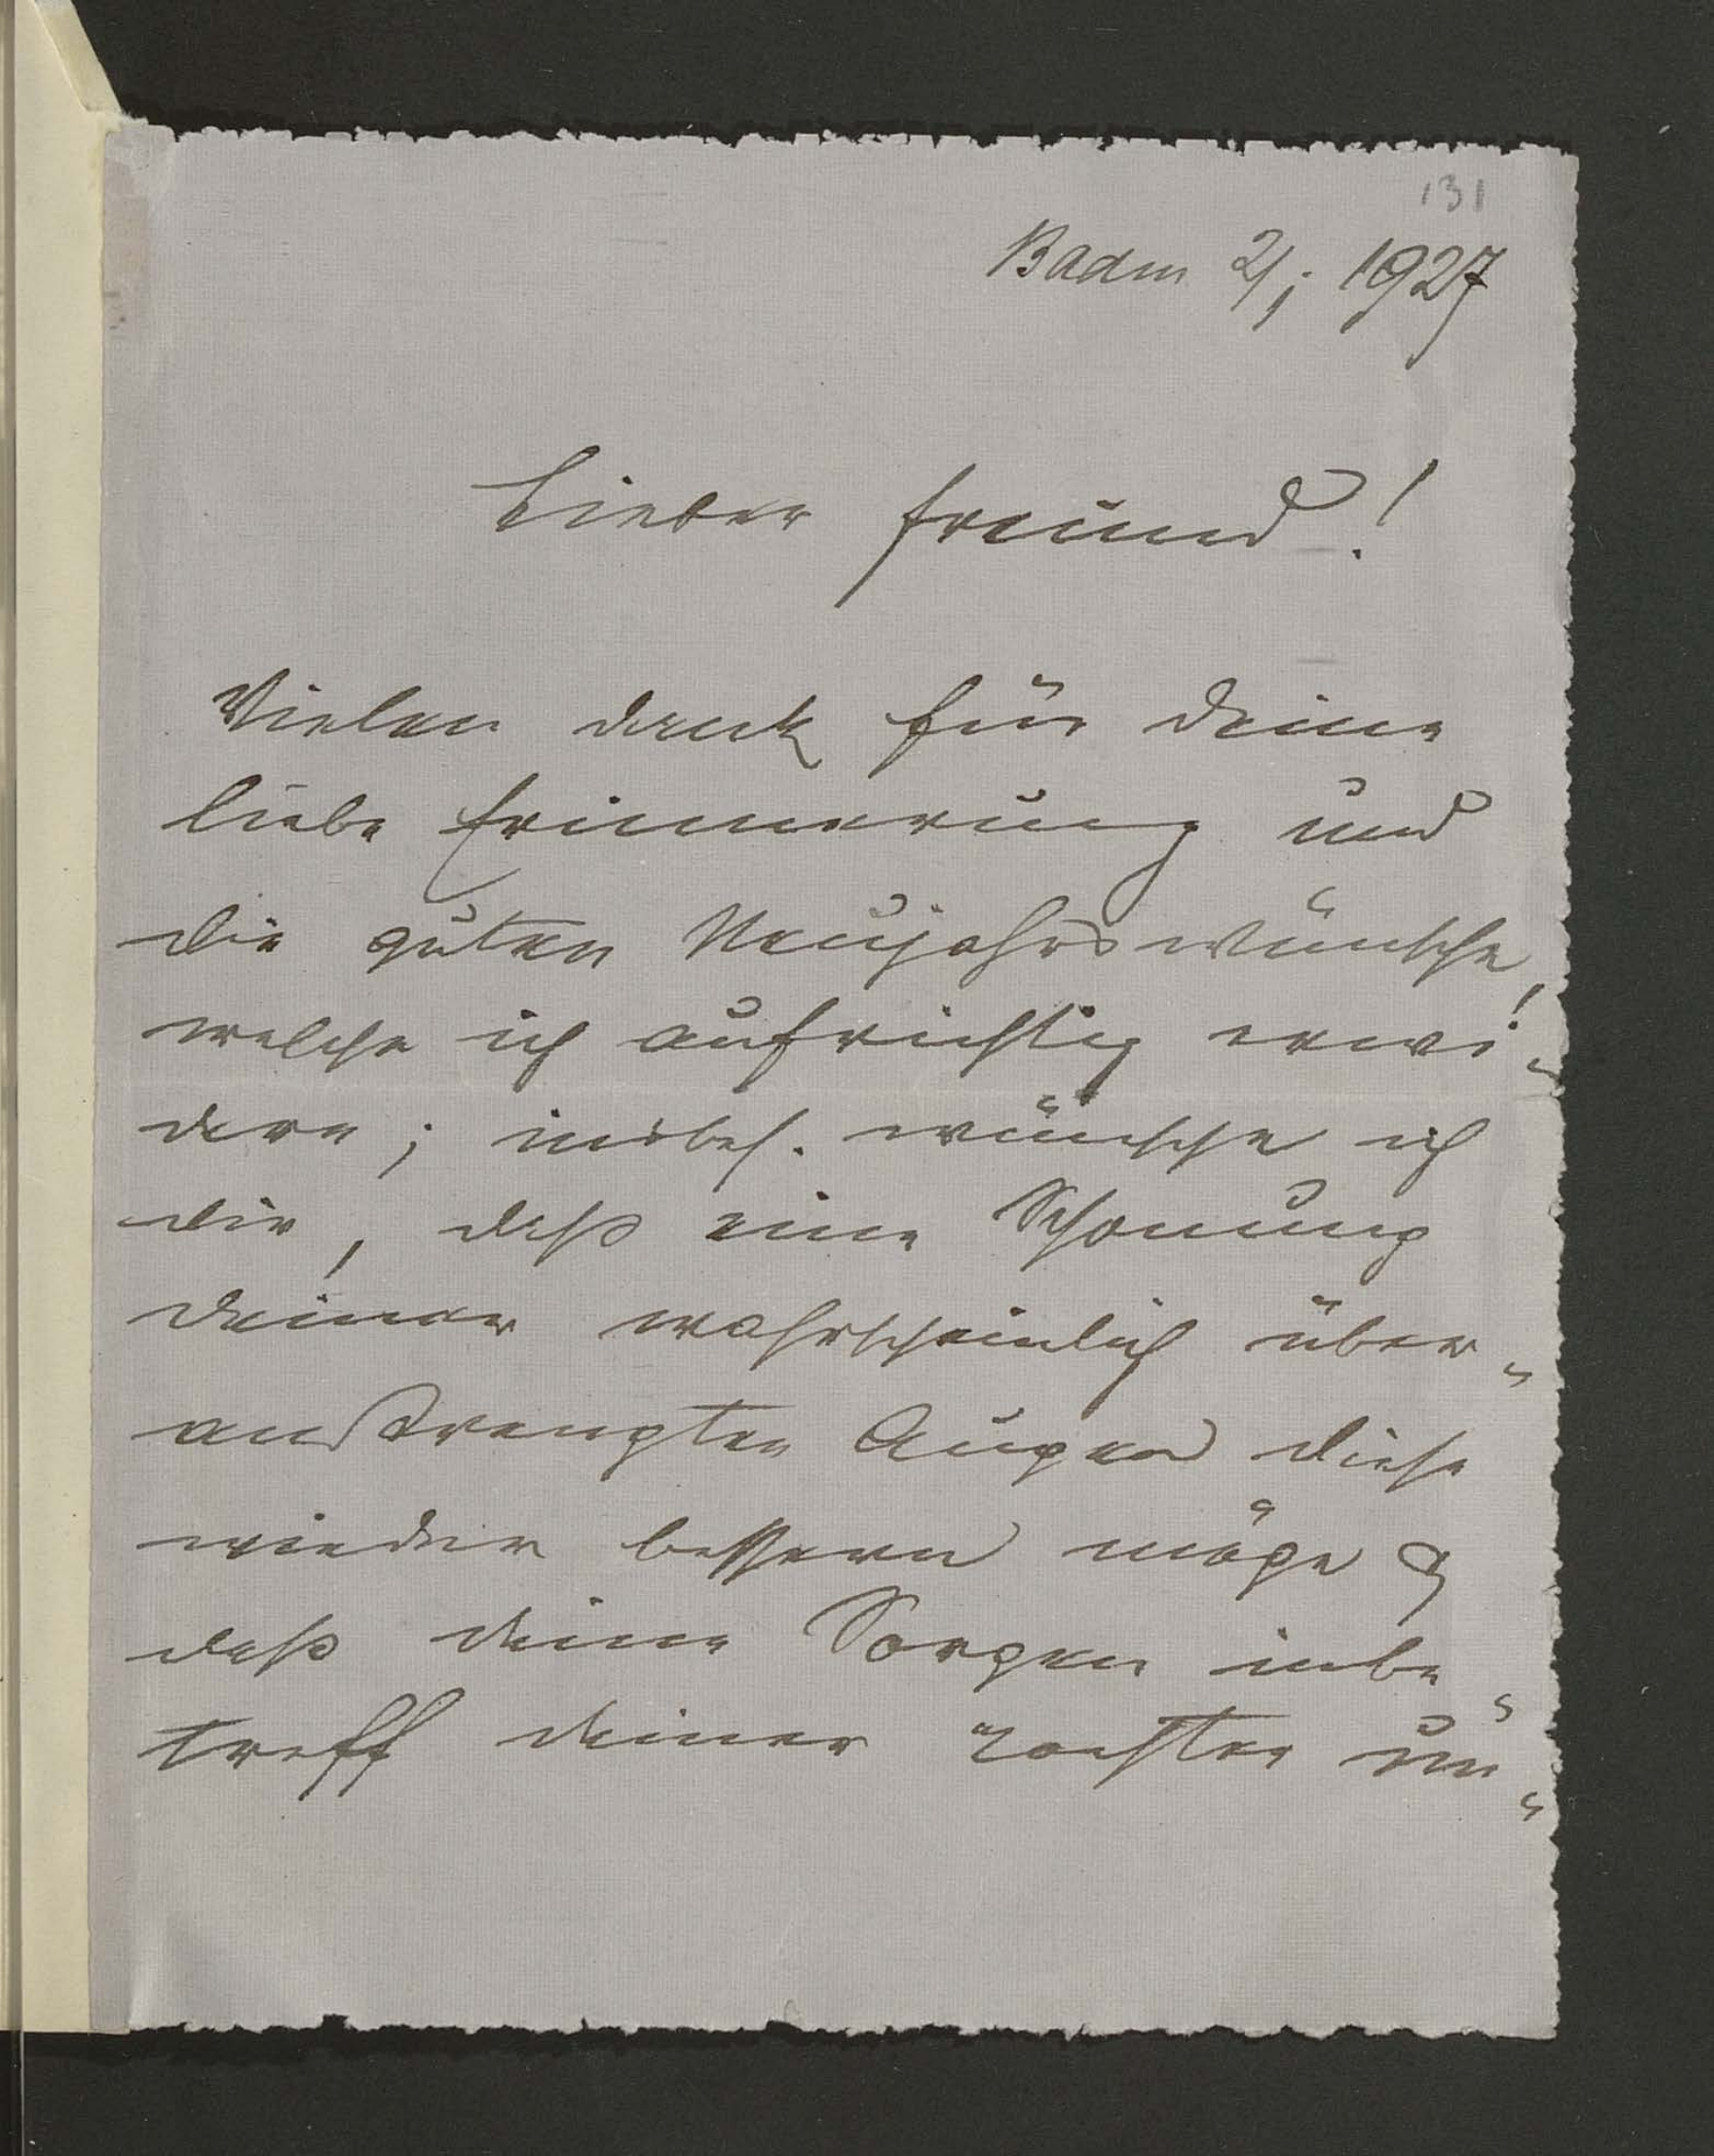 131
Baden 2/1 1927
Lieber Freund!
Vielen Dank für Deine
liebe Erinnerung und
die guten Neujahrswünsche,
welche ich aufrichtig erwi-
dere; insbes. wünsche ich
dir, daß eine Schonung
Deiner wahrscheinlich über-
anstrengten Augen diese
wieder bessern möge &
daß Deine Sorgen inbe-
treff Deiner um-